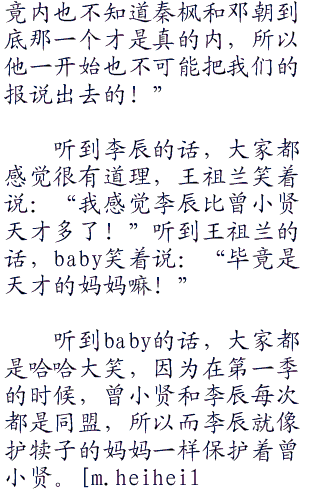 竟内也不知道秦枫和邓朝到
底那一个才是真的内，所以
他一开始也不可能把我们的
报说出去的！”
听到李辰的话，大家都
感觉很有道理，王祖兰笑着
说：“我感觉李辰比曾小贤
天才多了！”听到王祖兰的
话，baby笑着说：“毕竟是
天才的妈妈嘛！”
听到baby的话，大家都
是哈哈大笑，因为在第一季
的时候，曾小贤和李辰每次
都是同盟，所以而李辰就像
护犊子的妈妈一样保护着曾
小贤。[m.heihei1